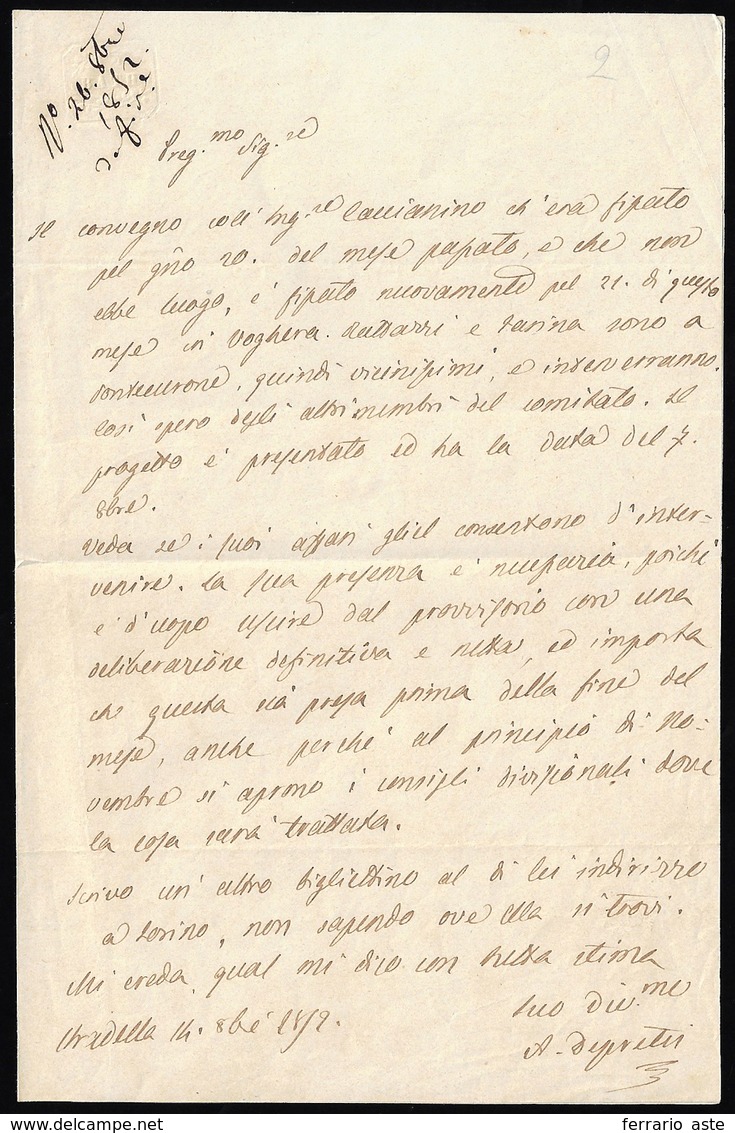 2
N.o 26. 8bre
1852.
Preg.mo Sig.re
Il convegno coll' Ing.re Caccianino ch' era fissato
pel gño 20. del mese passato, e che non
ebbe luogo, è fissato nuovamente pel 21. di questo
mese in Voghera. Rattazzi e Farina sono a
Pontecurone, quindi vicinissimi, e interverranno.
Così spero degli altri membri del comitato. Il
progetto è presentato ed ha la data del 7.
8bre.
Veda se i suoi affari gliel consentono d' inter=
venire. La sua presenza è necessaria, poichè
è d' uopo uscire dal provvisorio con una
deliberazione definitiva e netta, ed importa
che questa sia presa prima della fine del
mese, anche perchè al principio di no=
vembre si aprono i consigli divisionali dove
la cosa sarà trattata.
Scrivo un' altro bigliettino al di lei indirizzo
a Torino, non sapendo ove ella si trovi.
Mi creda qual mi dico con tutta stima
Suo Div.mo
Stradella 14. 8bre 1852.
A. Depretis
ferrario aste